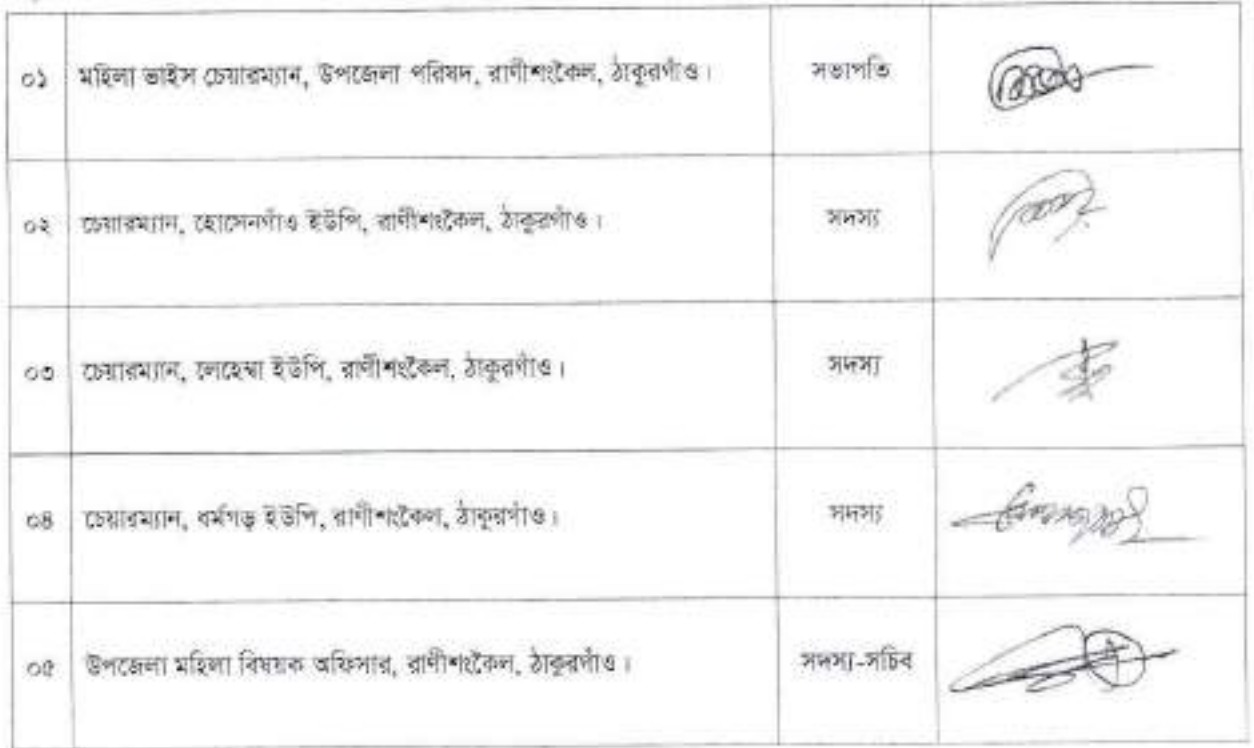 ০১ মহিলা ভাইস চেয়ারম্যান, উপজেলা পরিষদ, রাণীশংকৈল, ঠাকুরগাঁও। সভাপতি
০২ চেয়ারম্যান, হোসেনগাঁও ইউপি, রাণীশংকৈল, ঠাকুরগাঁও। সদস্য
০৩ চেয়ারম্যান, লেহেম্বা ইউপি, রাণীশংকৈল, ঠাকুরগাঁও। সদস্য
০৪ চেয়ারম্যান, ধর্মগড় ইউপি, রাণীশংকৈল, ঠাকুরগাঁও। সদস্য
০৫ উপজেলা মহিলা বিষয়ক অফিসার, রাণীশংকৈল, ঠাকুরগাঁও। সদস্য-সচিব